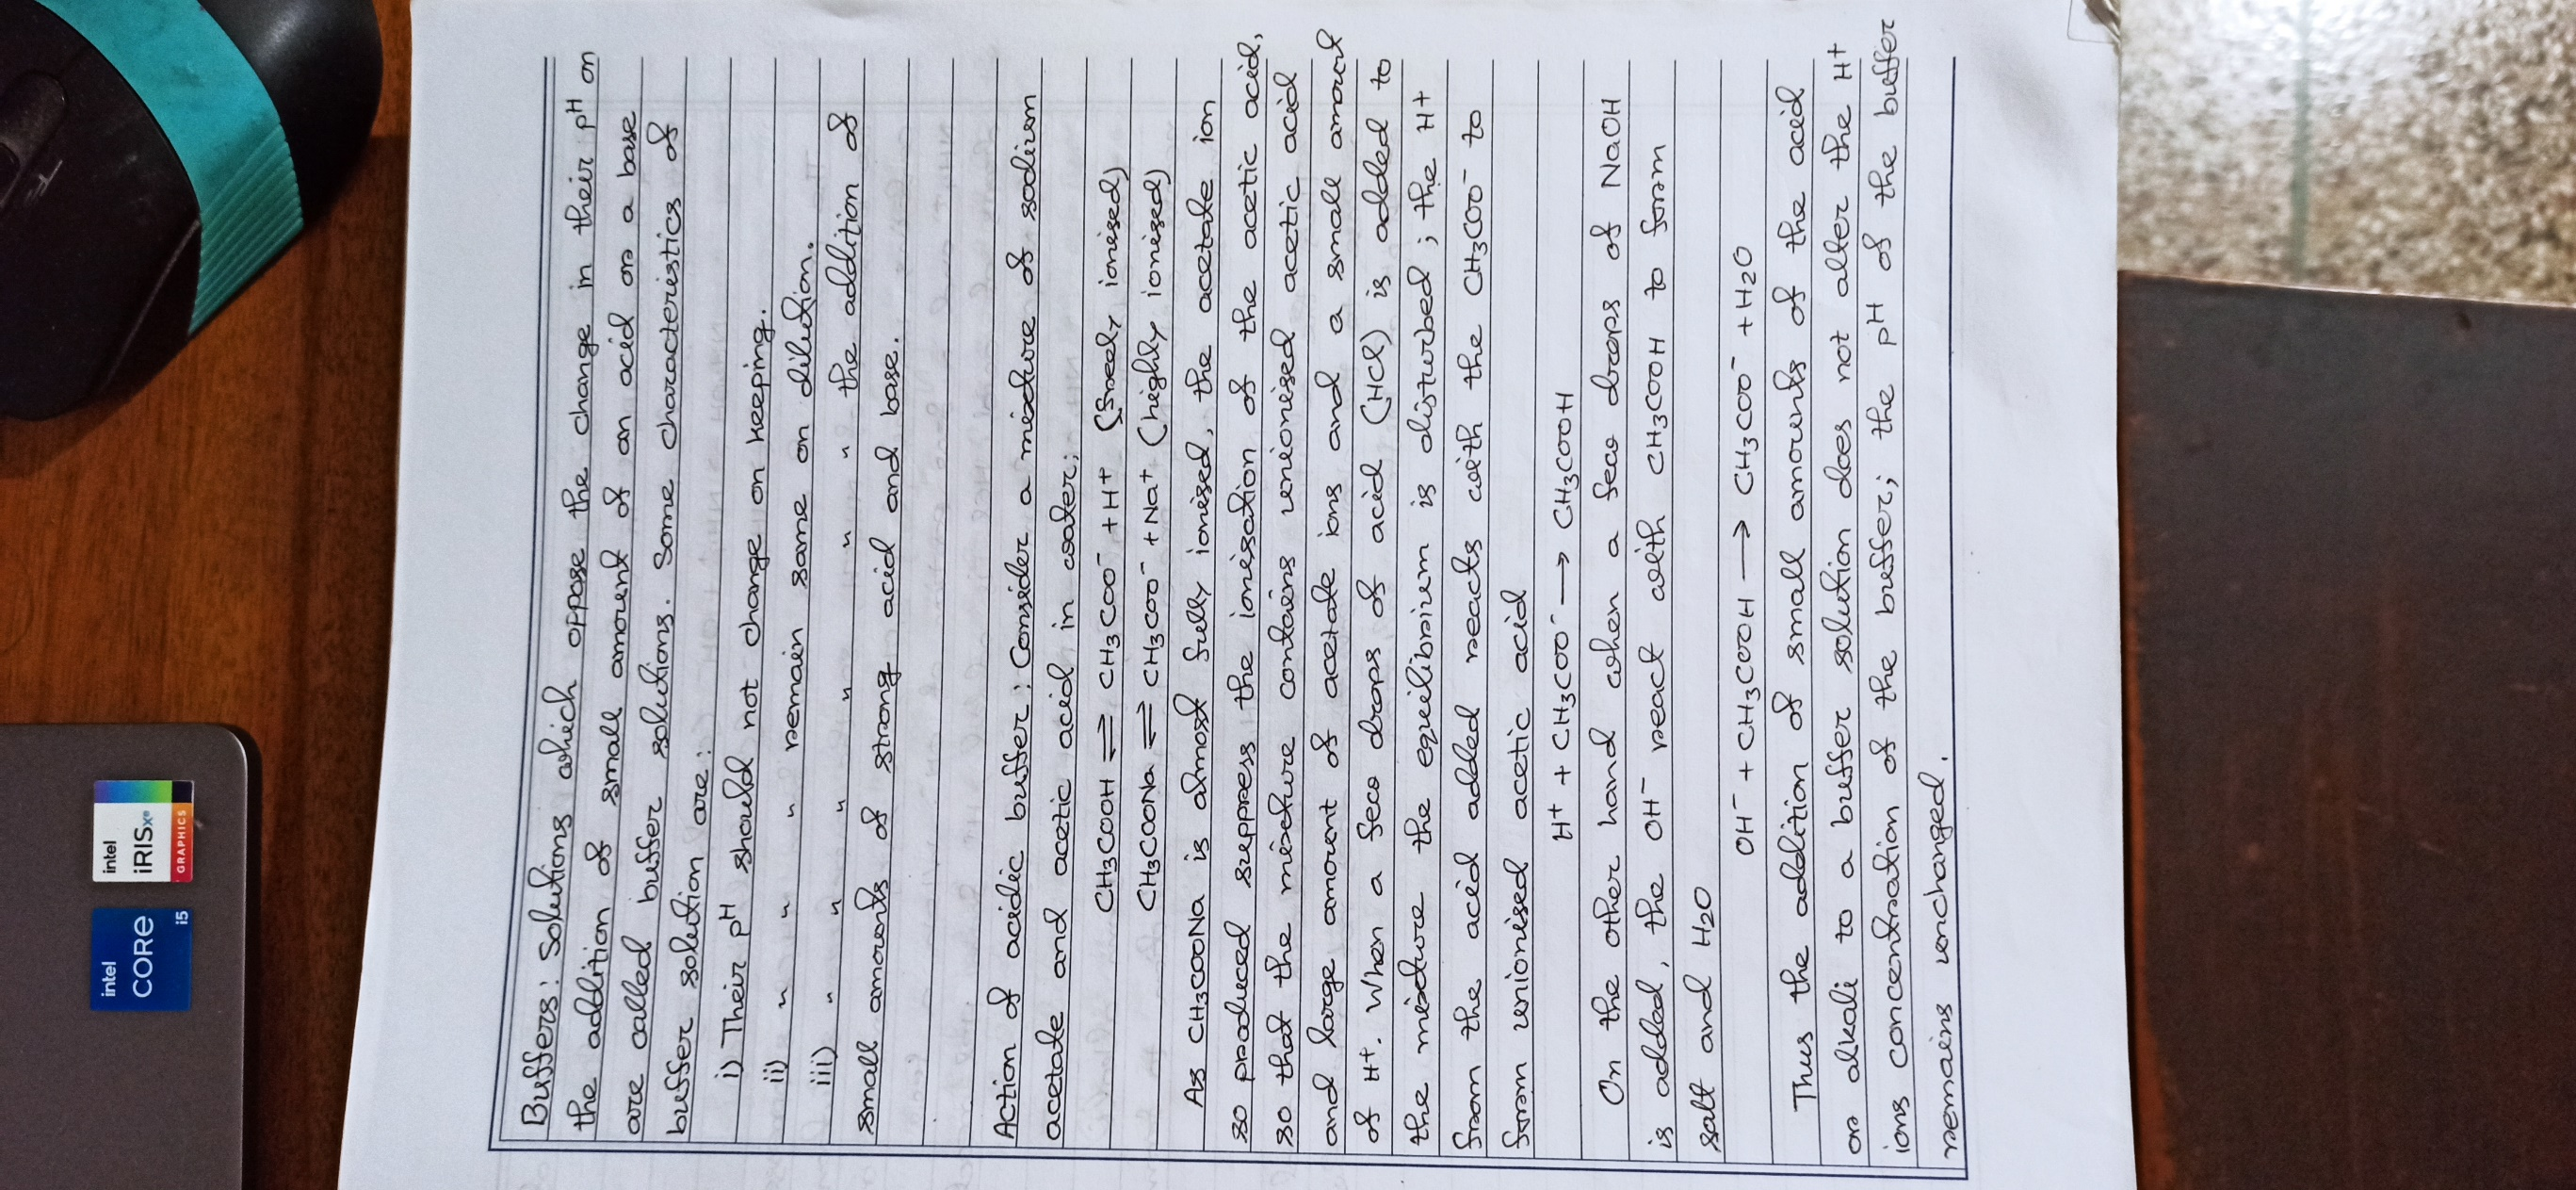 Buffers: Solutions which oppose the change in their pH on
the addition of small amount of an acid or a base
are called buffer solutions. Some characteristics of
buffer solution are:
i) Their pH should not change on keeping.
ii) " " " remain same on dilution.
iii) " " " " " " the addition of
small amounts of strong acid and base.
Action of acidic buffer: Consider a mixture of sodium
acetate and acetic acid in water;
CH3COOH ⇌ CH3COO⁻ + H⁺ (Freely ionised)
CH3COONa ⇌ CH3COO⁻ + Na⁺ (highly ionised)
As CH3COONa is almost fully ionised, the acetate ion
so produced suppress the ionisation of the acetic acid,
so that the mixture contains unionised acetic acid
and large amount of acetate ions and a small amount
of H⁺. When a few drops of acid (HCl) is added to
the mixture the equilibrium is disturbed; the H⁺
from the acid added reacts with the CH3COO⁻ to
form unionised acetic acid
H⁺ + CH3COO⁻ → CH3COOH
On the other hand when a few drops of NaOH
is added, the OH⁻ react with CH3COOH to form
salt and H2O
OH⁻ + CH3COOH → CH3COO⁻ + H2O
Thus the addition of small amounts of the acid
or alkali to a buffer solution does not alter the H⁺
ions concentration of the buffer; the pH of the buffer
remains unchanged.
intel
CORE
i5
intel
iRIS Xe
GRAPHICS